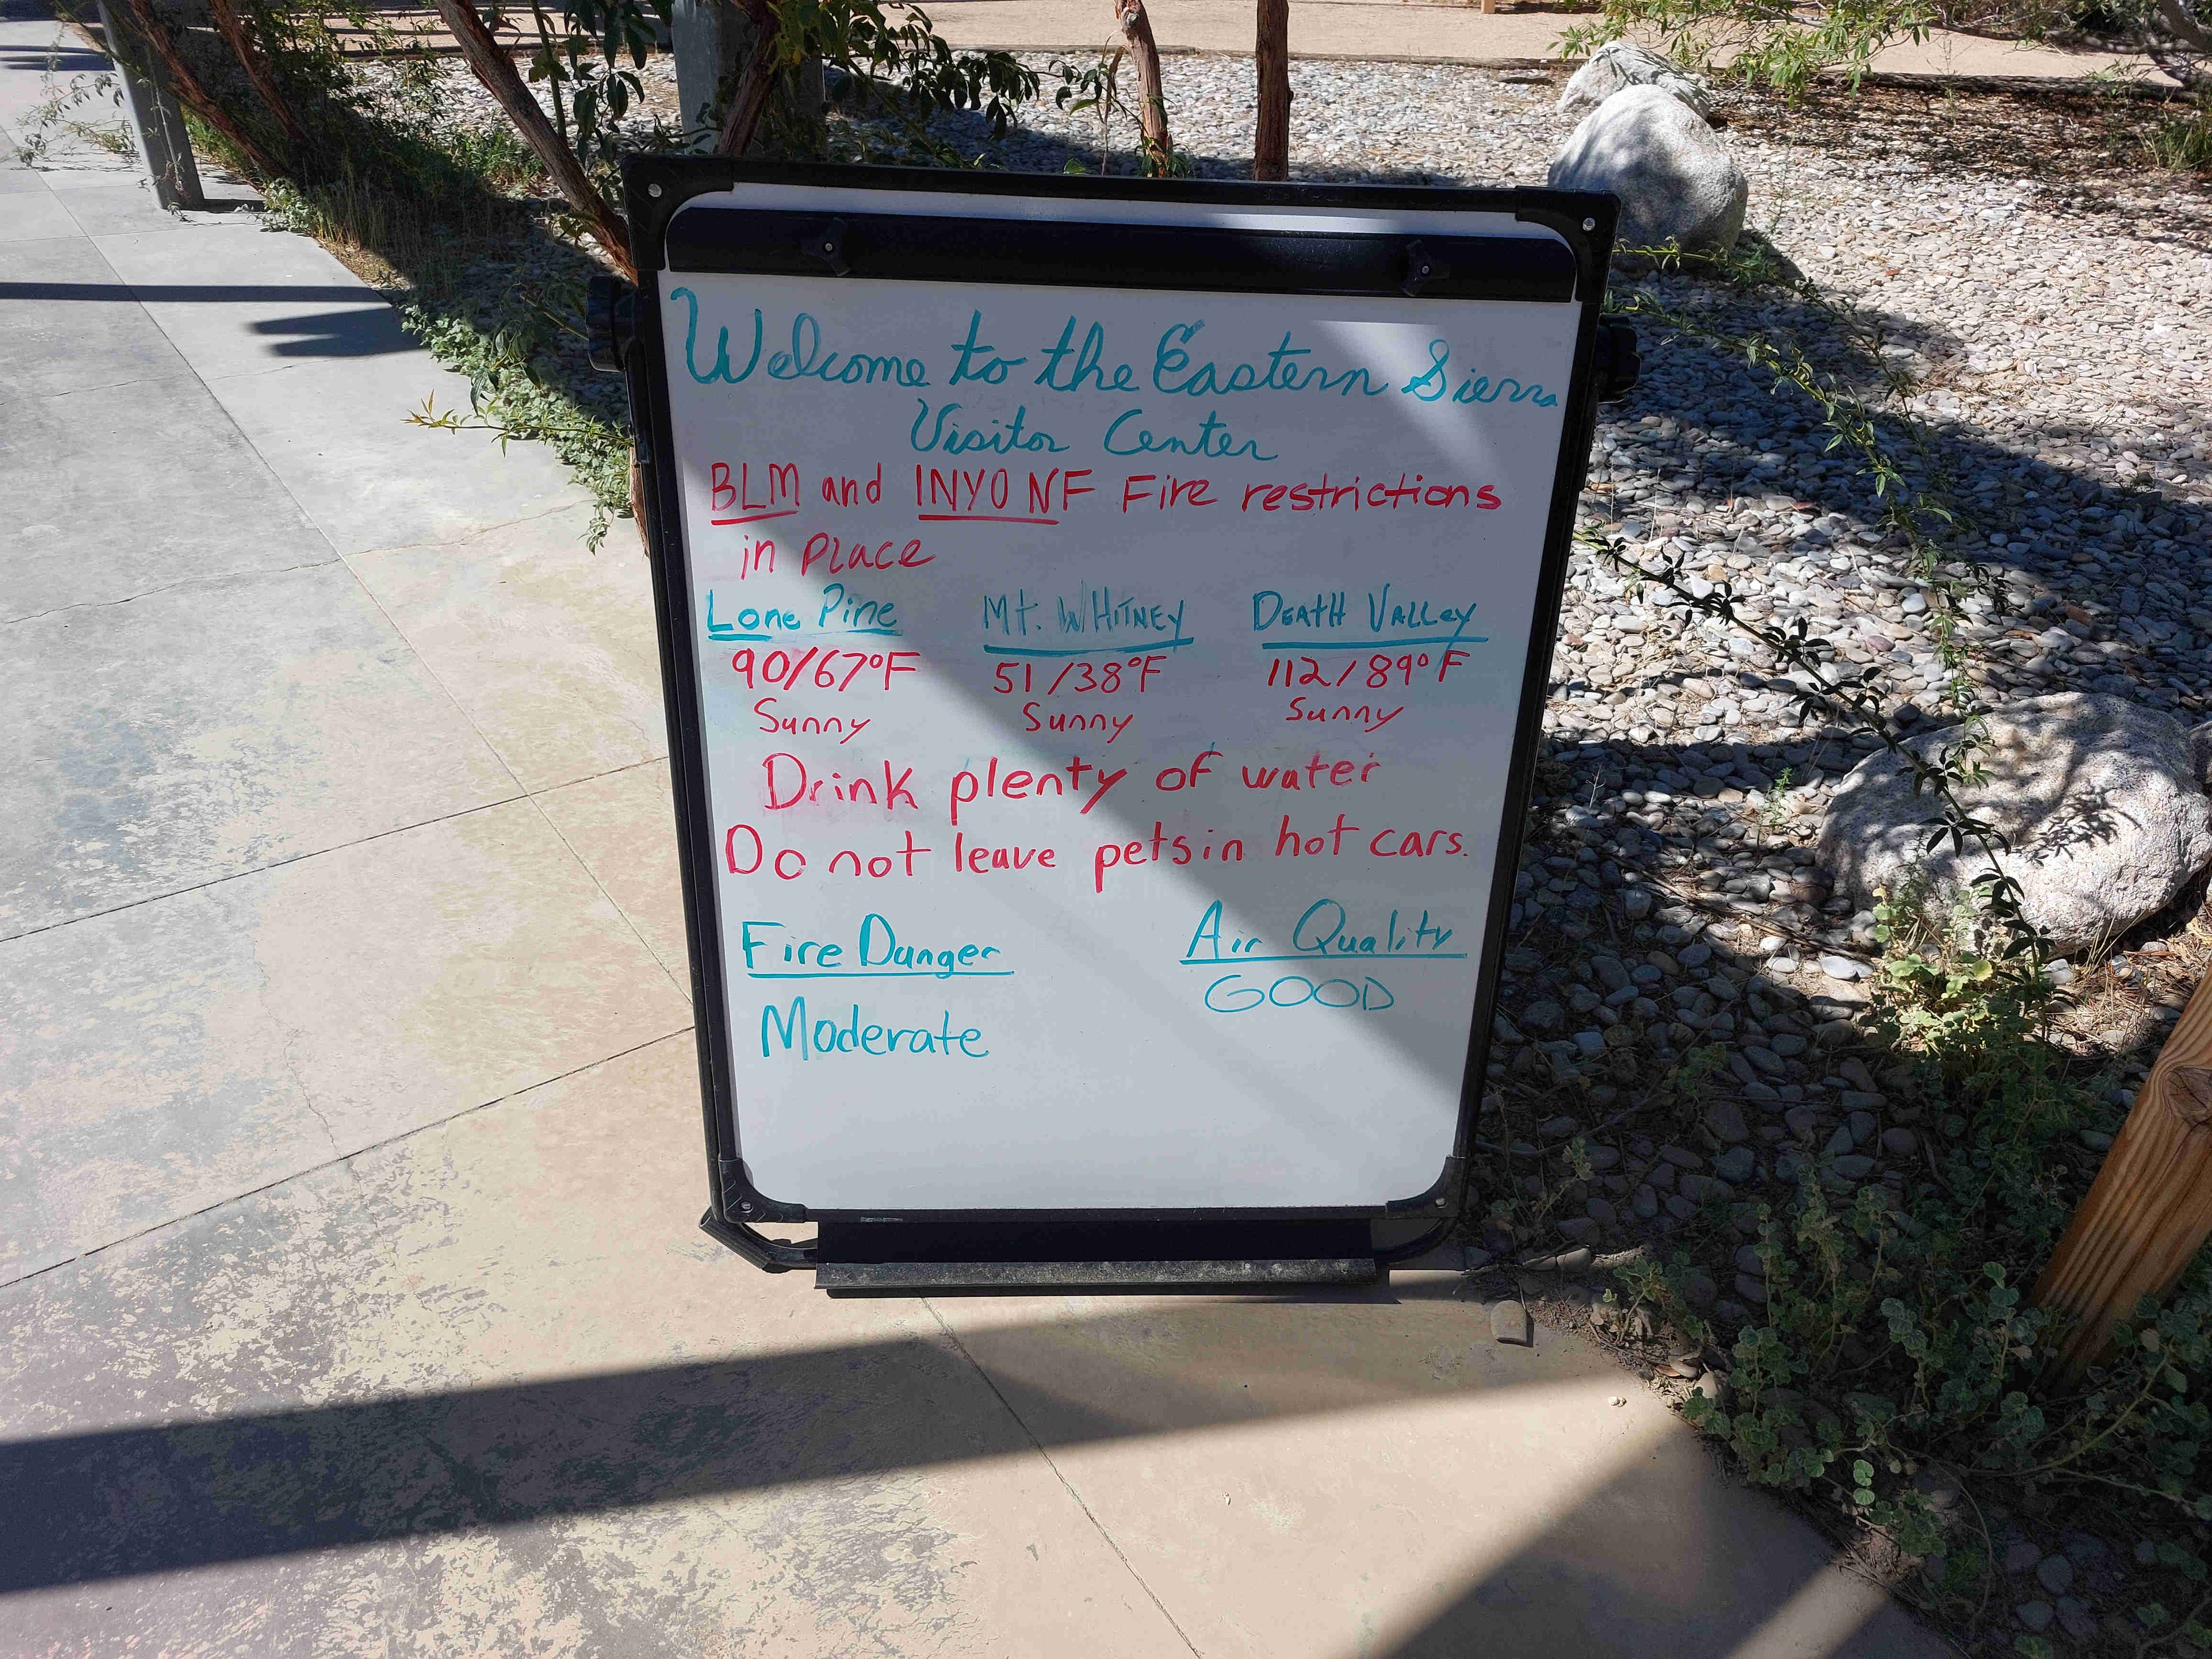 Welcome to the Eastern Sierra
Visitor Center
BLM and INYO NF Fire restrictions
in Place
Lone Pine Mt. WHITNEY DEATH VALLEY
90/67°F 51/38°F 112/89°F
Sunny Sunny Sunny
Drink plenty of water
Do not leave pets in hot cars.
Fire Danger Air Quality
Moderate GOOD